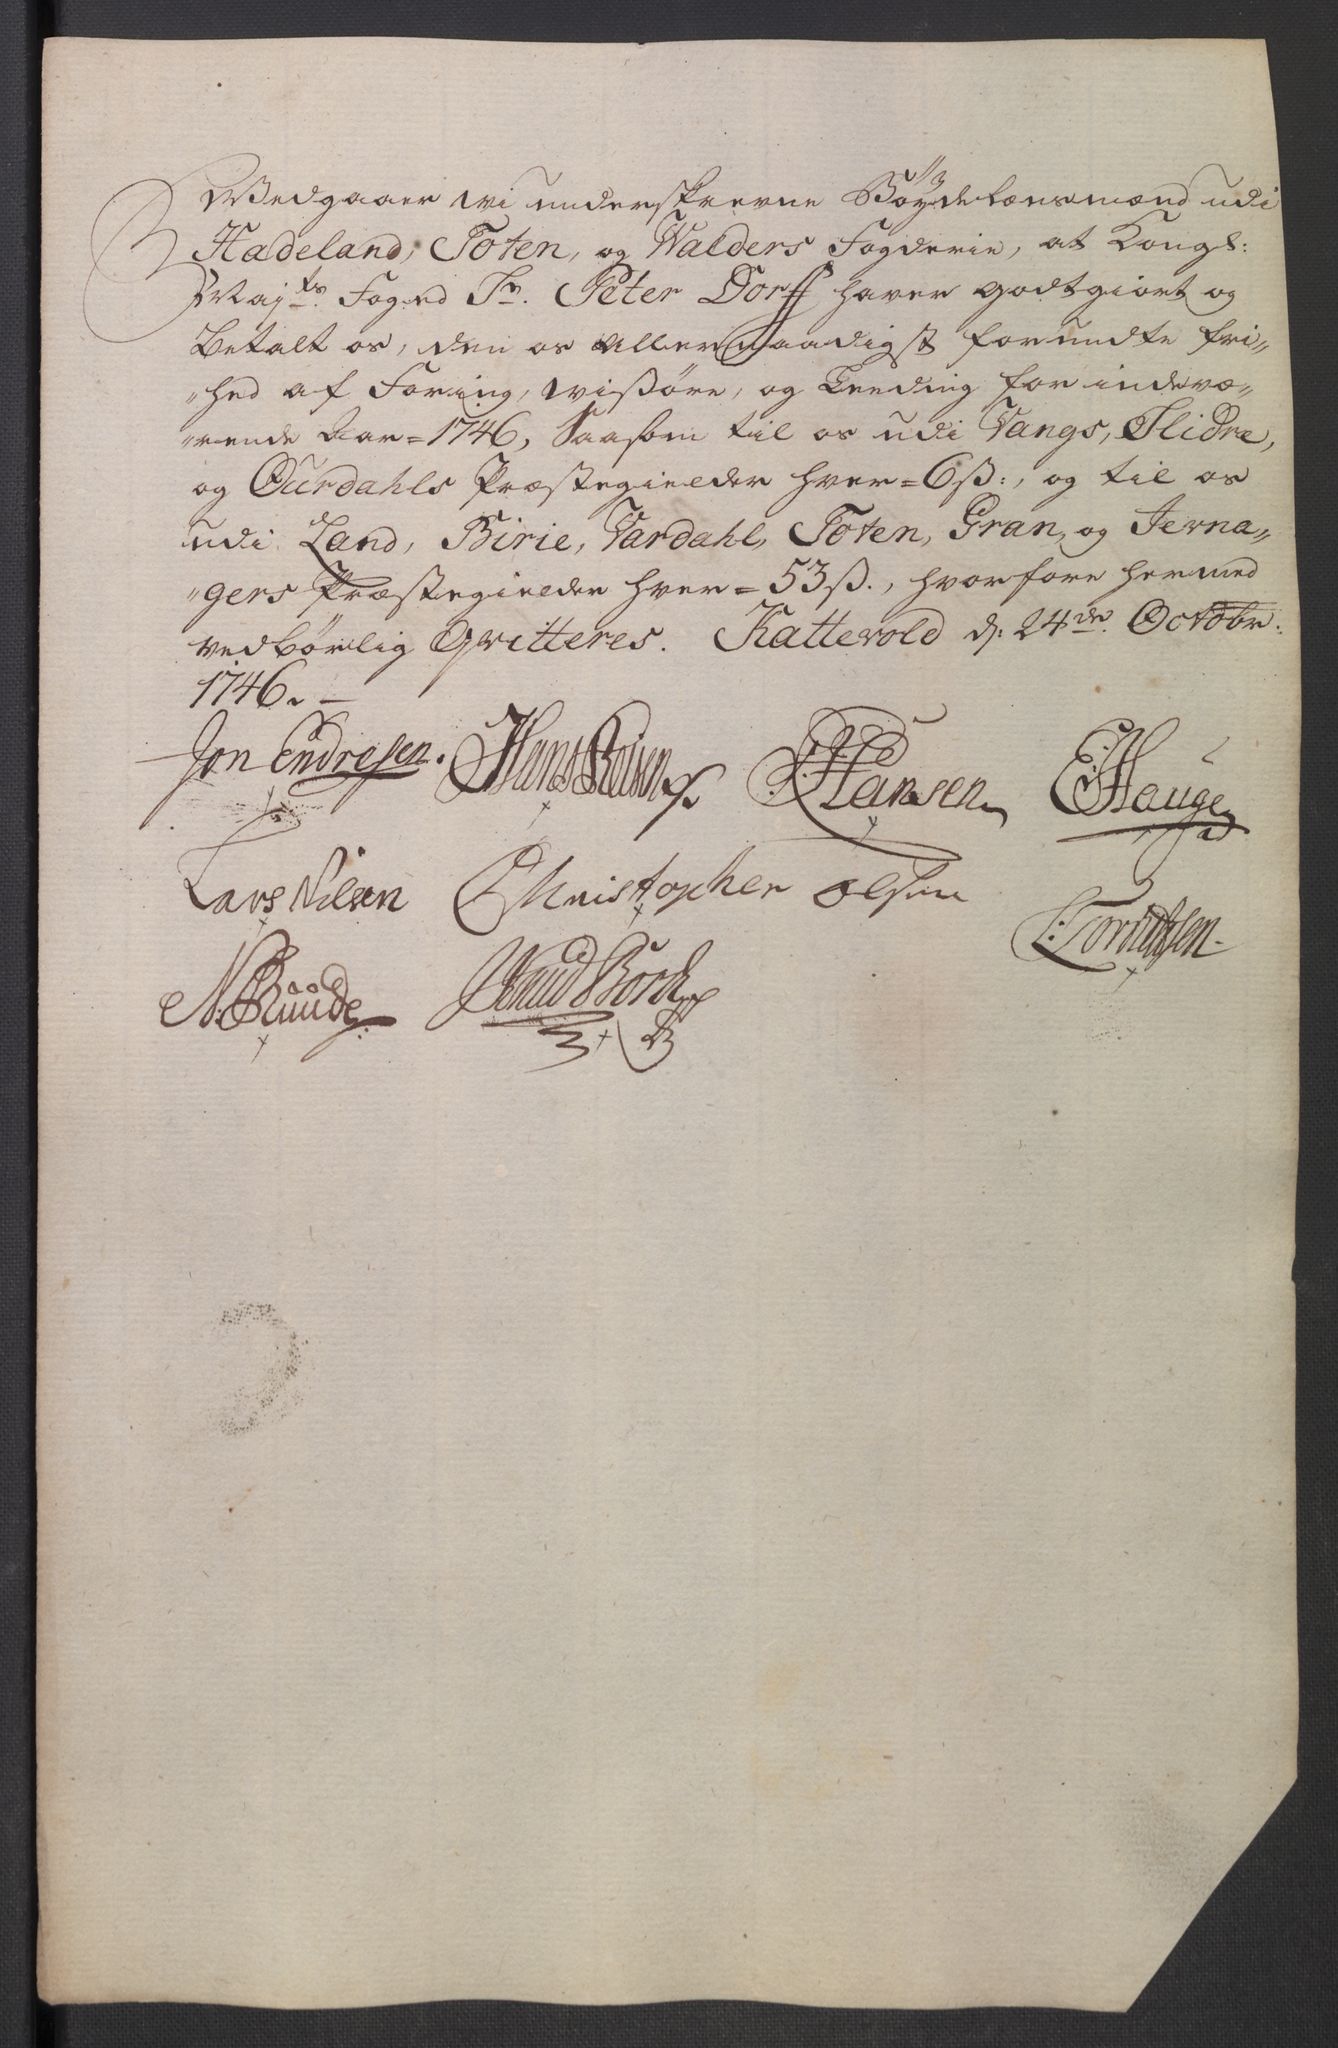 Wedgaaer wi underskrevne Böyde lænsmænd udi
Hadeland, Toten, og Walders Fogderie, at Kongl:
Majts. Foged Sr. Peter Dorff haver godtgiort og
Betalt os, den os allernaadigst forundte fri„
„hed af Foring, wisöre, og Leeding for indevæ„
„rende Aar = 1746, Saasom til os udi Vangs, Slidre,
og Ourdahls Præstegielder hver = 6ß:, og til os
udi Land, Birie, Vardahl, Toten, Gran, og Jevna„
„gers Præstegielder hver = 53ß., hvorfore hermed
vedbörlig Qvitteres. Kattevold d: 24de. Octobr:
1746. –
Jon Endresen. Hans Hansen E: Hauge
Lars Nilsen Christopher Olsen
N: Ruude Knud